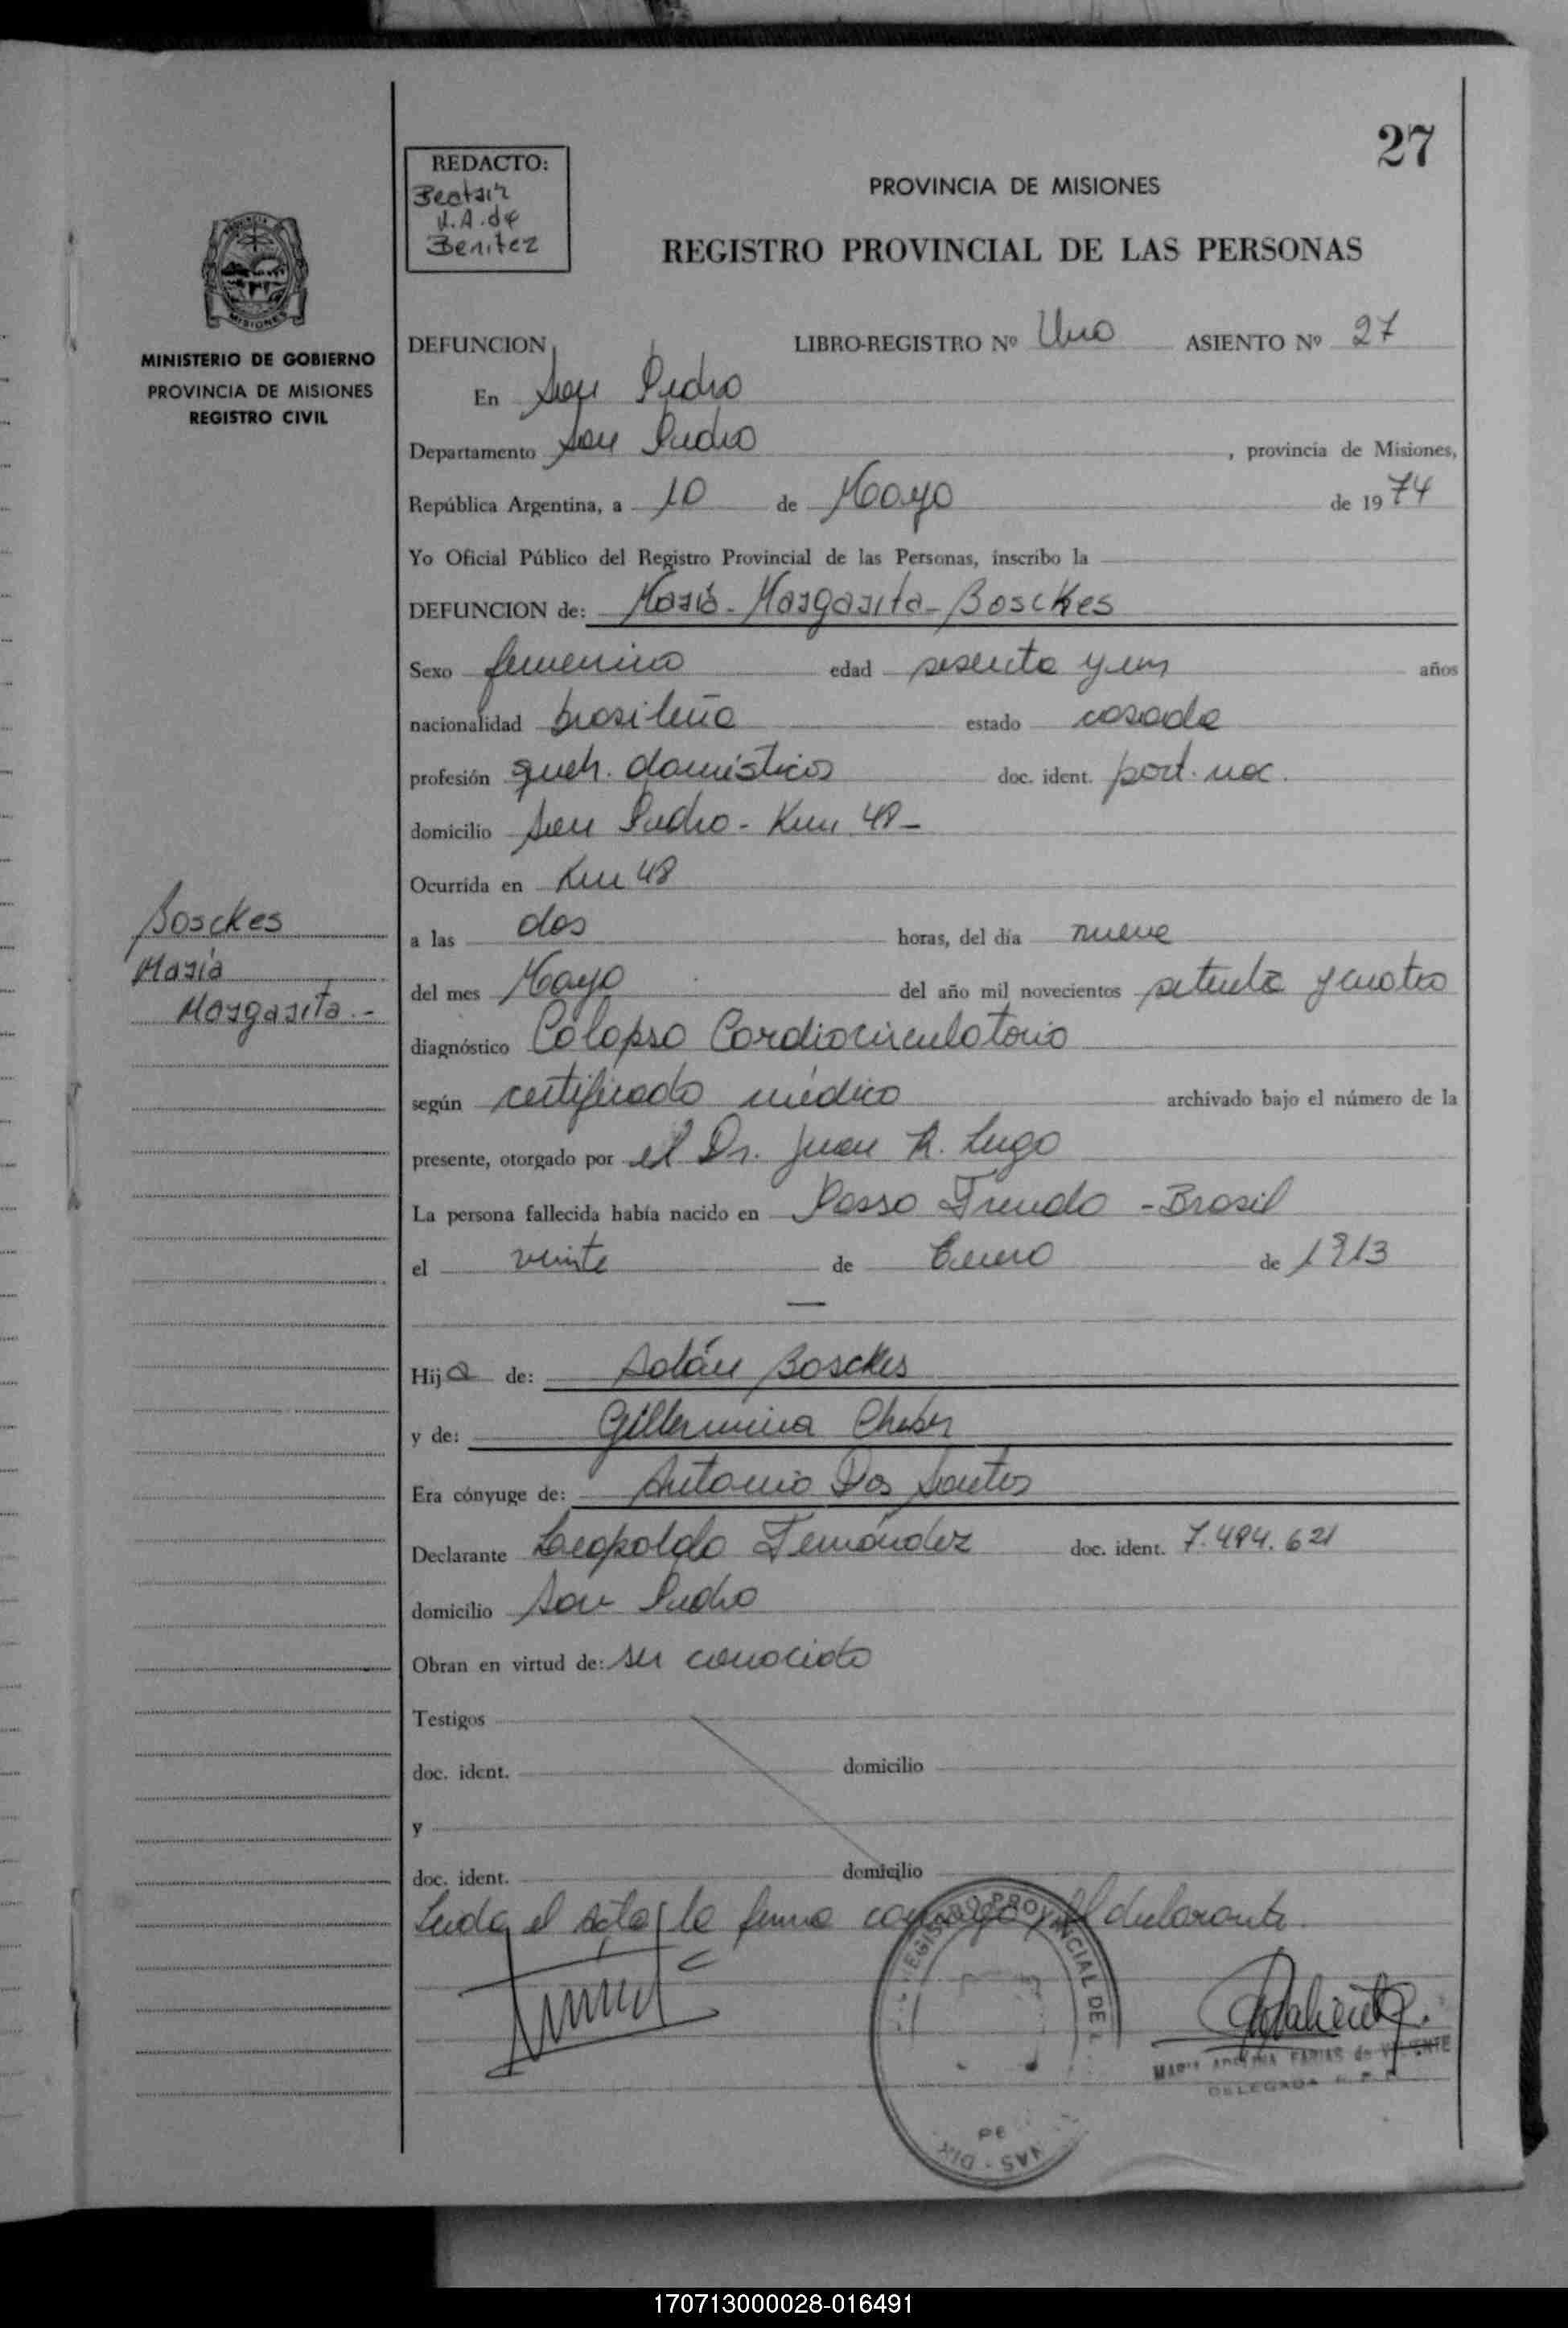 27
REDACTO:
Beatriz
V.A. de
Benitez
PROVINCIA DE MISIONES
REGISTRO PROVINCIAL DE LAS PERSONAS
MISIONES
MINISTERIO DE GOBIERNO
PROVINCIA DE MISIONES
REGISTRO CIVIL
DEFUNCION LIBRO-REGISTRO Nº Uno ASIENTO Nº 27
En San Pedro
Departamento San Pedro, provincia de Misiones,
República Argentina, a 10 de Mayo de 1974
Yo Oficial Público del Registro Provincial de las Personas, inscribo la
DEFUNCION de: María - Margarita - Bosckes
Sexo femenino edad sesenta y un años
nacionalidad brasileña estado casada
profesión queh. domésticos doc. ident. part. nac.
domicilio San Pedro - Km 48 -
Ocurrida en Km 48
Bosckes
María
Margarita.-
a las dos horas, del día nueve
del mes Mayo del año mil novecientos setenta y cuatro
diagnóstico Colapso Cardiocirculatorio
según certificado médico archivado bajo el número de la
presente, otorgado por el Dr. Juan R. Lugo
La persona fallecida había nacido en Passo Fundo - Brasil
el veinte de Enero de 1913
Hija de: Adán Bosckes
y de: Gillermina
Era cónyuge de: Antonio Dos Santos
Declarante Leopoldo Fernández doc. ident. 7.494.621
domicilio San Pedro
Obran en virtud de: ser conocido
Testigos
doc. ident. domicilio
y
doc. ident. domicilio
Leida el Acta, la firma conmigo, el declarante.
REGISTRO PROVINCIAL DE L
NAS - DIR
MARIA ADELINA FARIAS de VALIENTE
DELEGADA
170713000028-016491